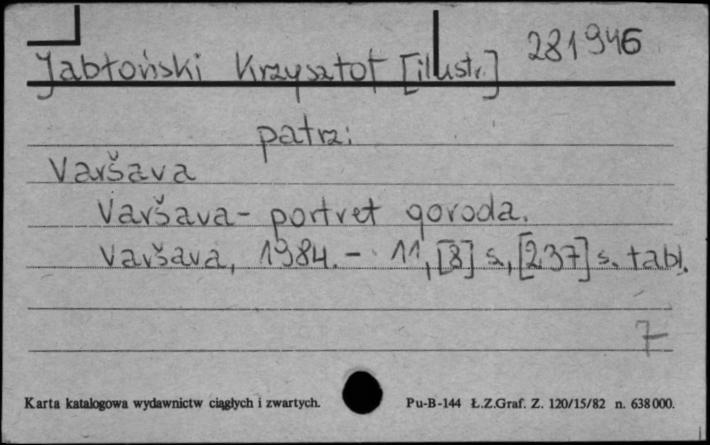 Jabłoński Krzysztof [ilustr.] 281946
patrz:
Varšava
Varšava - portret goroda.
Varšava, 1984. - 11, [8] s., [237] s. tabl.
7
Karta katalogowa wydawnictw ciągłych i zwartych. Pu-B-144 Ł.Z.Graf. Z. 120/15/82 n. 638 000.